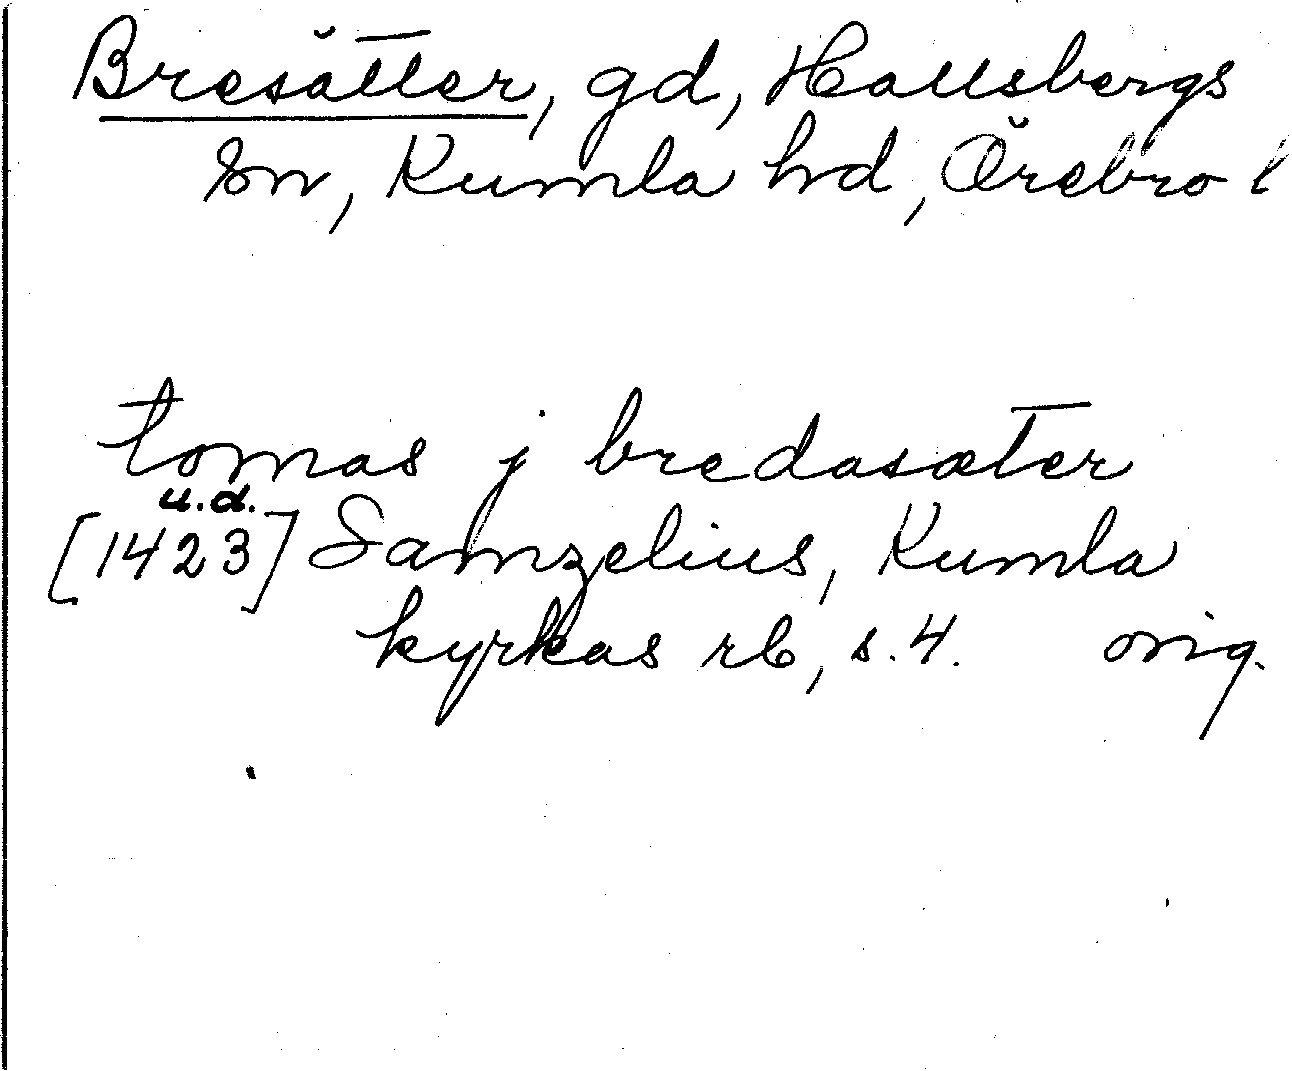 Bresätter, gd, Hallsbergs
sn, Kumla hd, Örebro l
tomas j bredasæter
u.d.
[1423] Samzelius, Kumla
kyrkas rb, s. 4. orig.